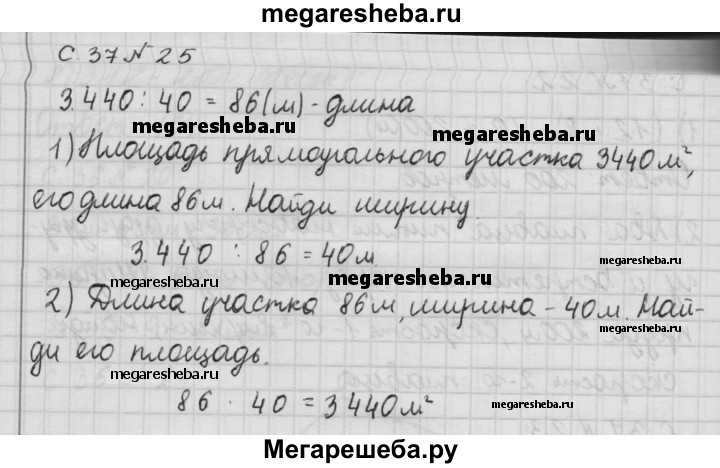 megaresheba.ru
С. 37 № 25
3.440 : 40 = 86(м) - длина
megaresheba.ru megaresheba.ru
1) Площадь прямоугольного участка 3440 м²,
его длина 86 м. Найди ширину.
3.440 : 86 = 40м
megaresheba.ru megaresheba.ru
2) Длина участка 86м, ширина - 40м. Най-
megaresheba.ru
ди его площадь.
megaresheba.ru
86 · 40 = 3440м²
megaresheba.ru
Мегарешеба.ру